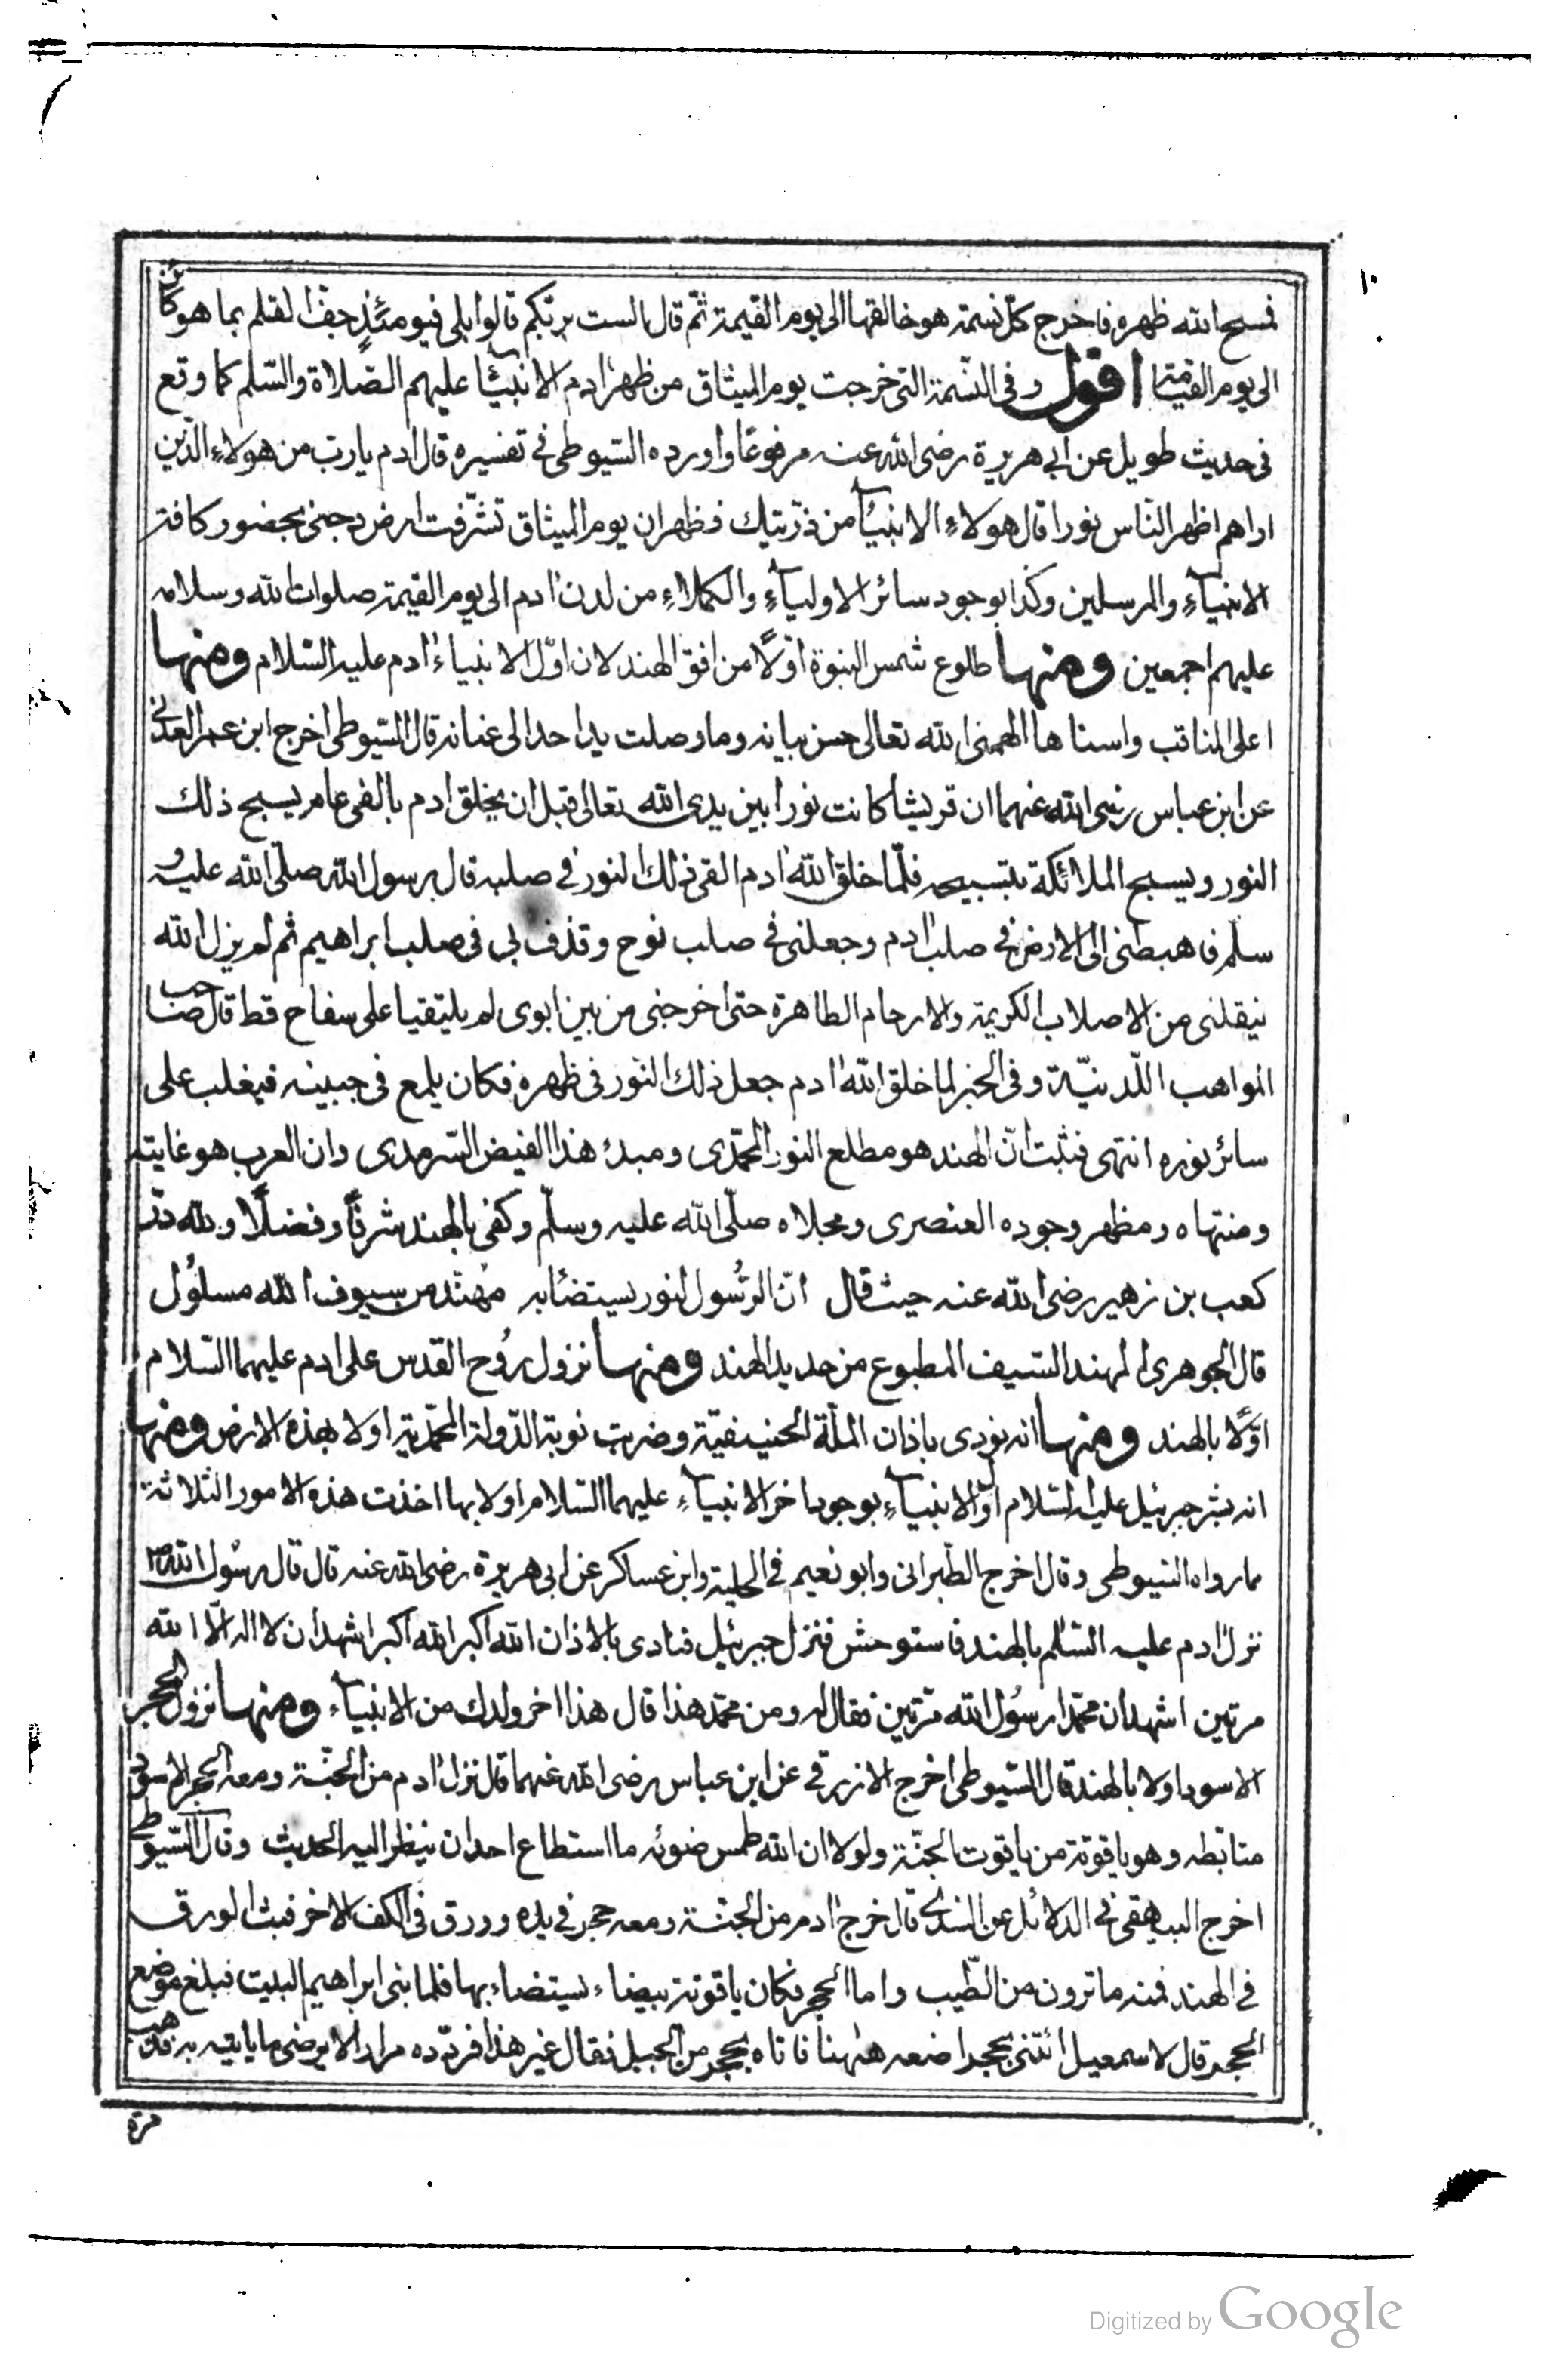 ١٠
فمسح الله ظهره فاخرج كل نسمة هو خالقها الى يوم القيمة ثمّ قال الست بربّكم قالوا بلى فيومئذٍ جفّ القلم بما هو كائن
الى يوم القيمة اقول وفى النّسمة التى خرجت يوم الميثاق من ظهر ادم الانبيآء عليهم الصّلاة والسّلم كما وقع
فى حديث طويل عن ابى هريرة رضى الله عنه مرفوعًا واورده السّيوطى فى تفسيره قال ادم يا ربّ من هولاء الّذين
اراهم اظهر النّاس نورا قال هولاء الانبيآء من ذرّيتك فظهر ان يوم الميثاق تشرّفت ارض دجنى بحضور كافة
الانبيآء والمرسلين وكذا بوجود سائر الاوليآء والكملاء من لدن ادم الى يوم القيمة صلوات الله وسلامه
عليهم اجمعين ومنها طلوع شمس النبوة اوّلًا من افق الهند لان اوّل الانبياء ادم عليه السّلام ومنها
اعلى المناقب واسناها الهمنى الله تعالى حسن بيانه وما وصلت يد احد الى عنانه قال السّيوطى اخرج ابن عمر العدنى
عن ابن عباس رضى الله عنهما ان قريشا كانت نورا بين يدى الله تعالى قبل ان يخلق ادم بالفى عام يسبح ذلك
النور ويسبح الملائكة بتسبيحه فلمّا خلق الله ادم القى ذلك النور فى صلبه قال رسول الله صلّى الله عليه و
سلّم فاهبطنى الى الارض فى صلب ادم وجعلنى فى صلب نوح وقذف بى فى صلب ابراهيم ثم لم يزل الله
ينقلنى من الاصلاب الكريمة والارحام الطاهرة حتى اخرجنى من بين ابوى لم يلتقيا على سفاح قط قال صاحب
المواهب اللّدنيّة وفى الخبر لما خلق الله ادم جعل ذلك النّور فى ظهره فكان يلمع فى جبينه فيغلب على
سائر نوره انتهى فثبت انّ الهند هو مطلع النور المحمّدى ومبدء هذا الفيض السّرمدى وان العرب هو غايته
ومنتهاه ومظهر وجوده العنصرى ومجلاه صلّى الله عليه وسلّم وكفى بالهند شرفًا وفضلًا ولله درّ
كعب بن زهير رضى الله عنه حيث قال انّ الرّسُول لنور يستضاء به مُهنّد من سيوف الله مسلُول
قال الجوهرى المهند السّيف المطبوع من حديد الهند ومنها نزول رُوح القدس على ادم عليهما السّلام
اوّلًا بالهند ومنها انه نودى باذان الملّة الحنيفيّة وضربت نوبة الدّولة المحمّدية اولا بهذه الارض ومنها
انه بشر جبرئيل عليه السّلام اول الانبيآء بوجود اخر الانبيآء عليهما السّلام اولا بها اخذت هذه الامور الثلاثة
مما رواه السّيوطى وقال اخرج الطّبرانى وابو نعيم فى الحلية وابن عساكر عن ابى هريرة رضى الله عنه قال قال رسُول الله ص
نزل ادم عليه السّلم بالهند فاستوحش فنزل جبرئيل فنادى بالاذان الله اكبر الله اكبر اشهد ان لا اله الّا الله
مرتين اشهد ان محمّدا رسُول الله مرّتين فقال له ومن محمّد هذا قال هذا اخر ولدك من الانبيآء ومنها نزول الحجر
الاسود اولا بالهند قال السّيوطى اخرج الازرقى عن ابن عباس رضى الله عنهما قال نزل ادم من الجنّة ومعه الحجر الاسود
متابّطه وهو ياقوتة من ياقوت الجنّة ولولا ان الله طمس ضوئه ما استطاع احد ان ينظر اليه الحديث وقال السّيوطى
اخرج البيهقى فى الدلائل عن السّدى قال خرج ادم من الجنّة ومعه حجر فى يده وورق فى الكف الاخر فبث الورق
فى الهند فمنه ما ترون من الطّيب واما الحجر فكان ياقوتة بيضاء يستضاء بها فلما بنى ابراهيم البيت فبلغ موضع
الحجر قال لاسمعيل ائتنى بحجر اضعه هٰهنا فاتاه بحجر من الجبل فقال غير هذا فردّه مرارا لا يرضى ما ياتيه به فذهب
مرّة
Digitized by Google